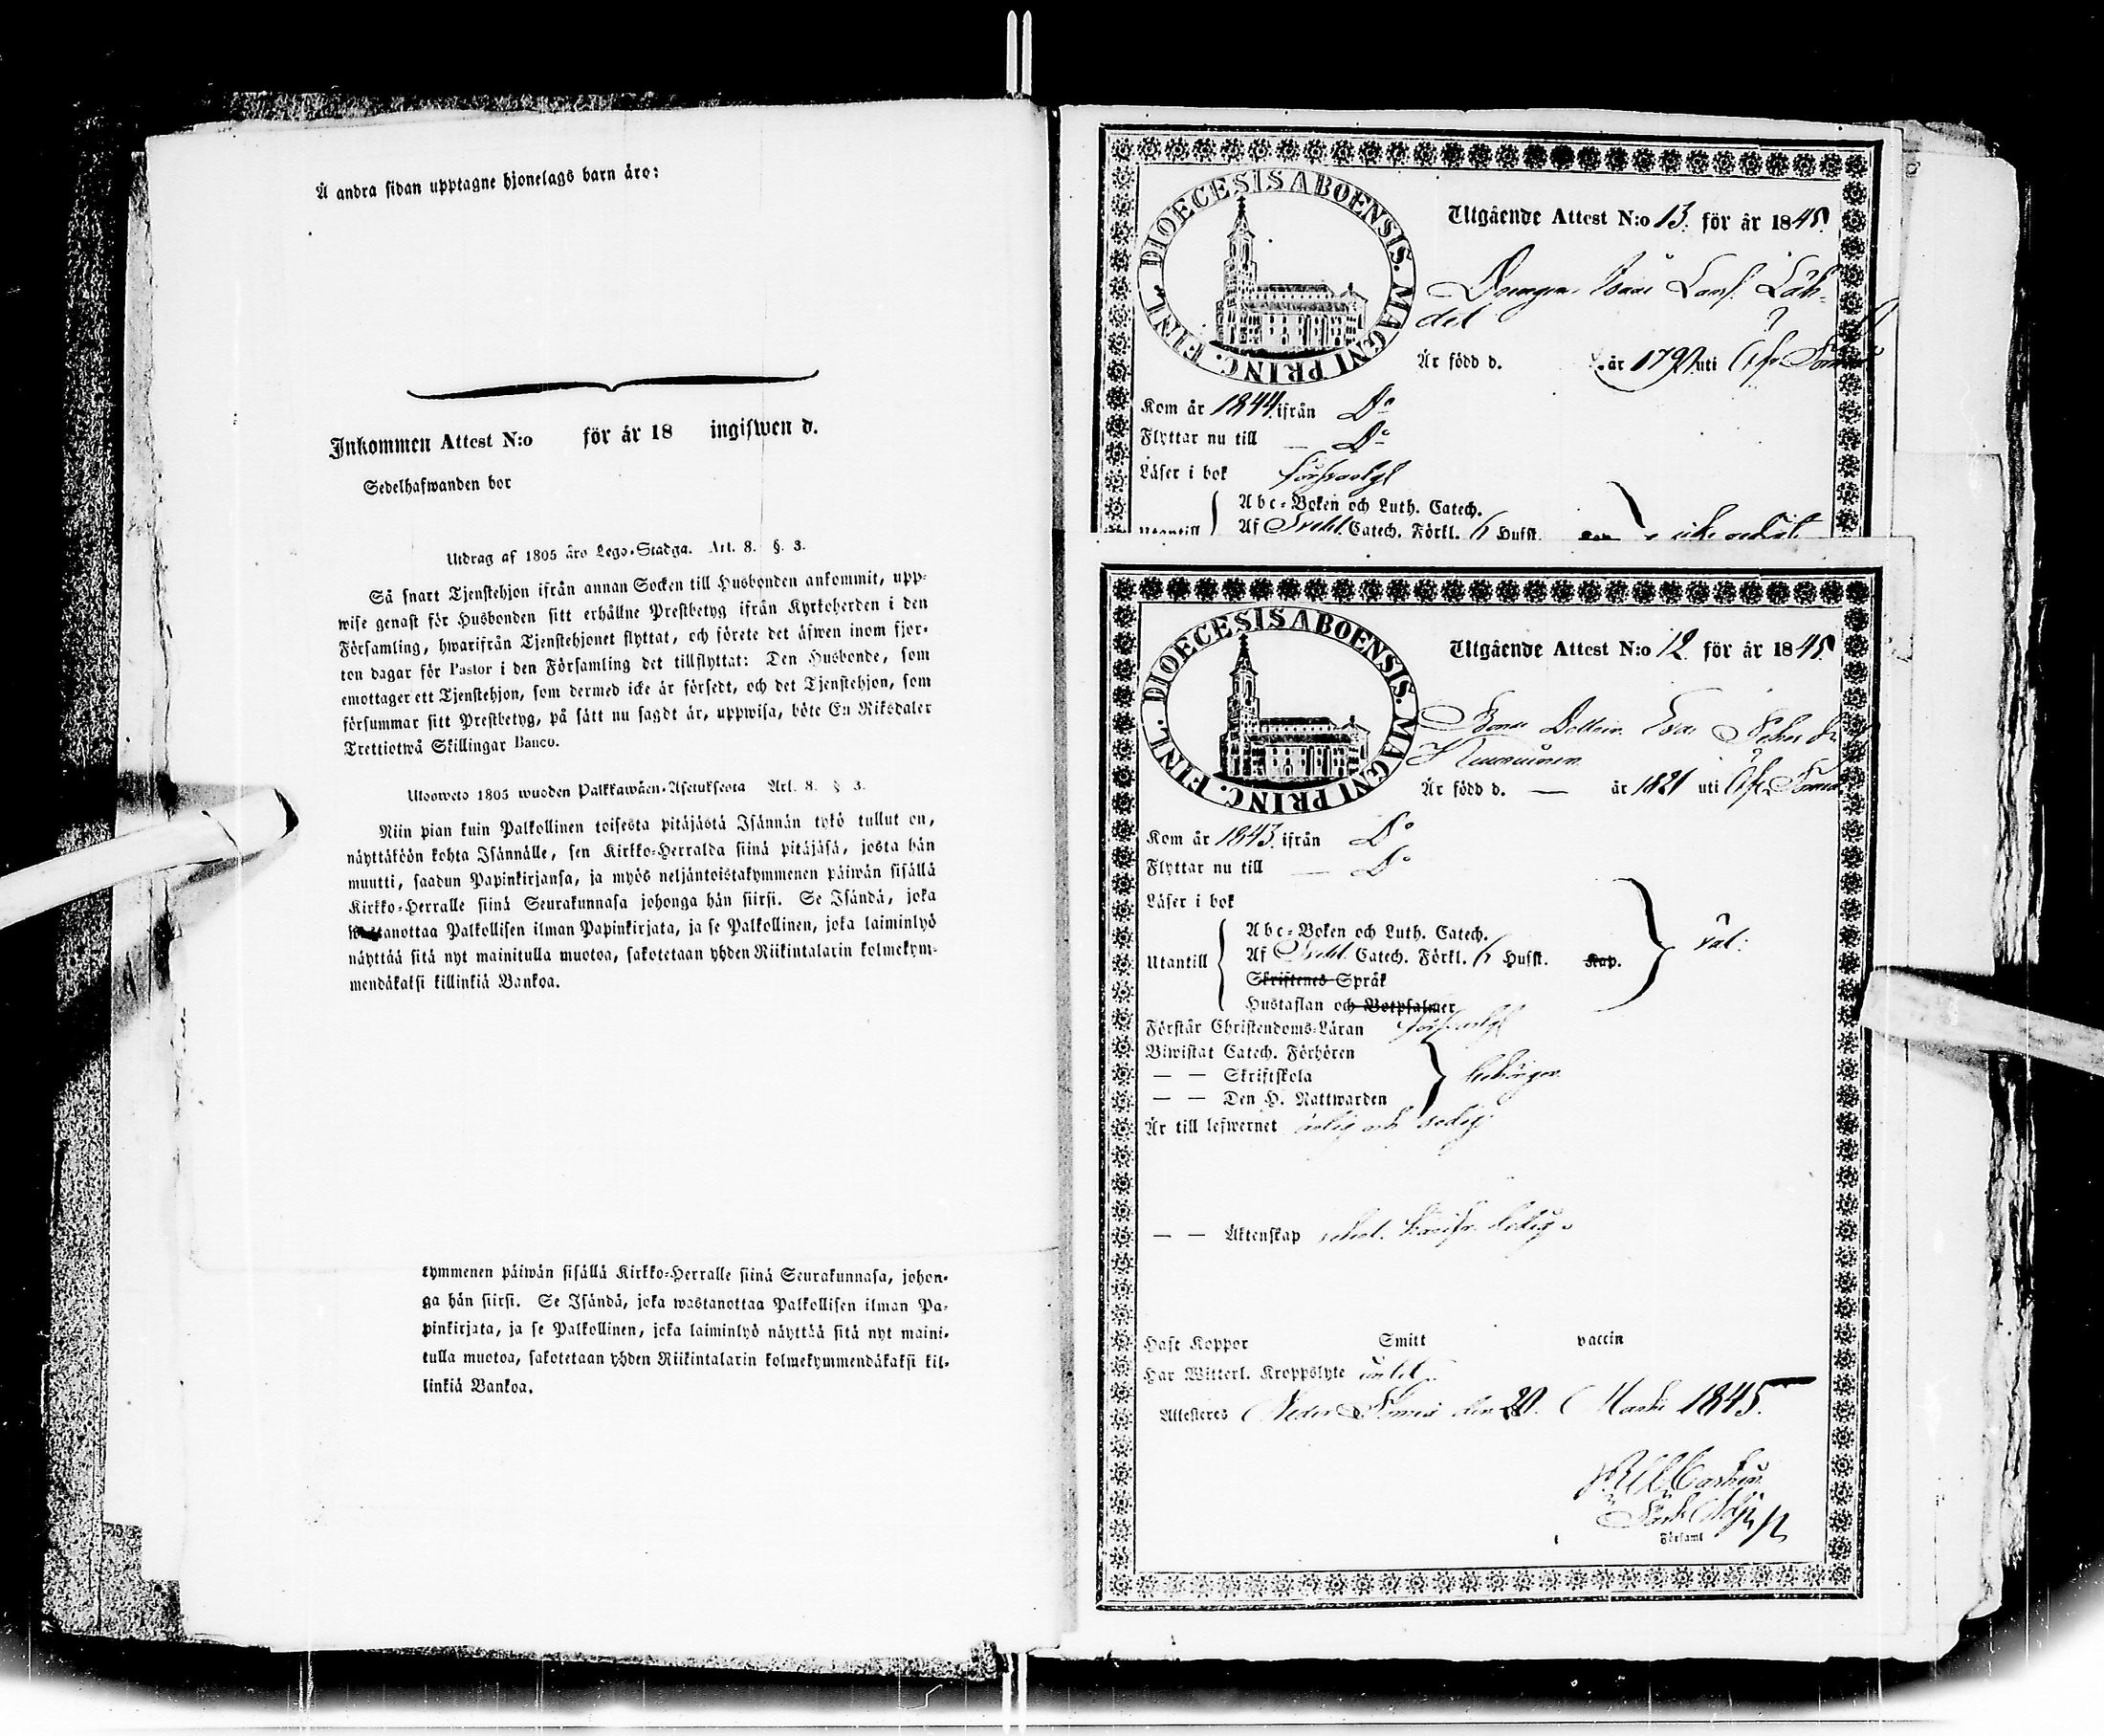 Å andra sidan upptagne hjonelags barn äro:
Inkommen Attest N:o för år 18 ingifwen d.
Sedelhafwanden bor
Utdrag af 1805 års Lego-Stadga. Art. 8. §. 3.
Så snart Tjenstehjon ifrån annan Socken till Husbonden ankommit, upp-
wise genast för Husbonden sitt erhållne Prestbetyg ifrån Kyrkoherden i den
Församling, hwarifrån Tjenstehjonet flyttat, och förete det äfwen inom fjor-
ton dagar för Pastor i den Församling det tillflyttat: Den Husbonde, som
emottager ett Tjenstehjon, som dermed icke är försedt, och det Tjenstehjon, som
försummar sitt Prestbetyg, på sätt nu sagdt är, uppwisa, böte En Riksdaler
Trettiotwå Skillingar Banco.
Ulosweto 1805 wuoden Palkkawäen-Asetuksesta Art. 8. § 3.
Niin pian kuin Palkollinen toisesta pitäjästä Isännän tykö tullut on,
näyttäköön kohta Isännälle, sen Kirkko-Herralda siinä pitäjäsä, josta hän
muutti, saadun Papinkirjansa, ja myös neljäntoistakymmenen päiwän sisällä
Kirkko-Herralle siinä Seurakunnasa johonga hän siirsi. Se Isändä, joka
wastanottaa Palkollisen ilman Papinkirjata, ja se Palkollinen, joka laiminlyö
näyttää sitä nyt mainitulla muotoa, sakotetaan yhden Riikintalarin kolmekym-
mendäkaksi killinkiä Bankoa.
kymmenen päiwän sisällä Kirkko-Herralle siinä Seurakunnasa, johon-
ga hän siirsi. Se Isändä, joka wastanottaa Palkollisen ilman Pa-
pinkirjata, ja se Palkollinen, joka laiminlyö näyttää sitä nyt maini-
tulla muotoa, sakotetaan yhden Riikintalarin kolmekymmendäkaksi kil-
linkiä Bankoa.
DIOECESIS ABOENSIS. MAGNI PRINC. FINL.
Utgående Attest N:o 13. för år 1845.
Drengen Isaac
Är född d. år 179 uti
Kom år 1844. ifrån Do
Flyttar nu till — Do
Läser i bok försvarligt
Abc-Boken och Luth. Catech.
Utantill Af Svebel. Catech. Förkl. Husst.
DIOECESIS ABOENSIS. MAGNI PRINC. FINL.
Utgående Attest N:o 12. för år 1845.
Eva
Är född d. — år 1821 uti
Kom år 1843. ifrån Do
Flyttar nu till — Do
Läser i bok
Abc-Boken och Luth. Catech.
Utantill Af Svebel. Catech. Förkl. Husst. Kap. väl:
Skriftenes Språk
Hustaflan och Botpsalmer
Förstår Christendoms-Läran försvarligt
Biwistat Catech. Förhören
— — Skriftskola behörigen
— — Den H. Nattwarden
Är till lefwernet ärlig och sedig
— — Äktenskap ledig.
Haft Koppor Smitt vaccin
Har Witterl. Kroppslyte intet.
Attesteres Neder Somero den 20. Martii 1845.
Församl